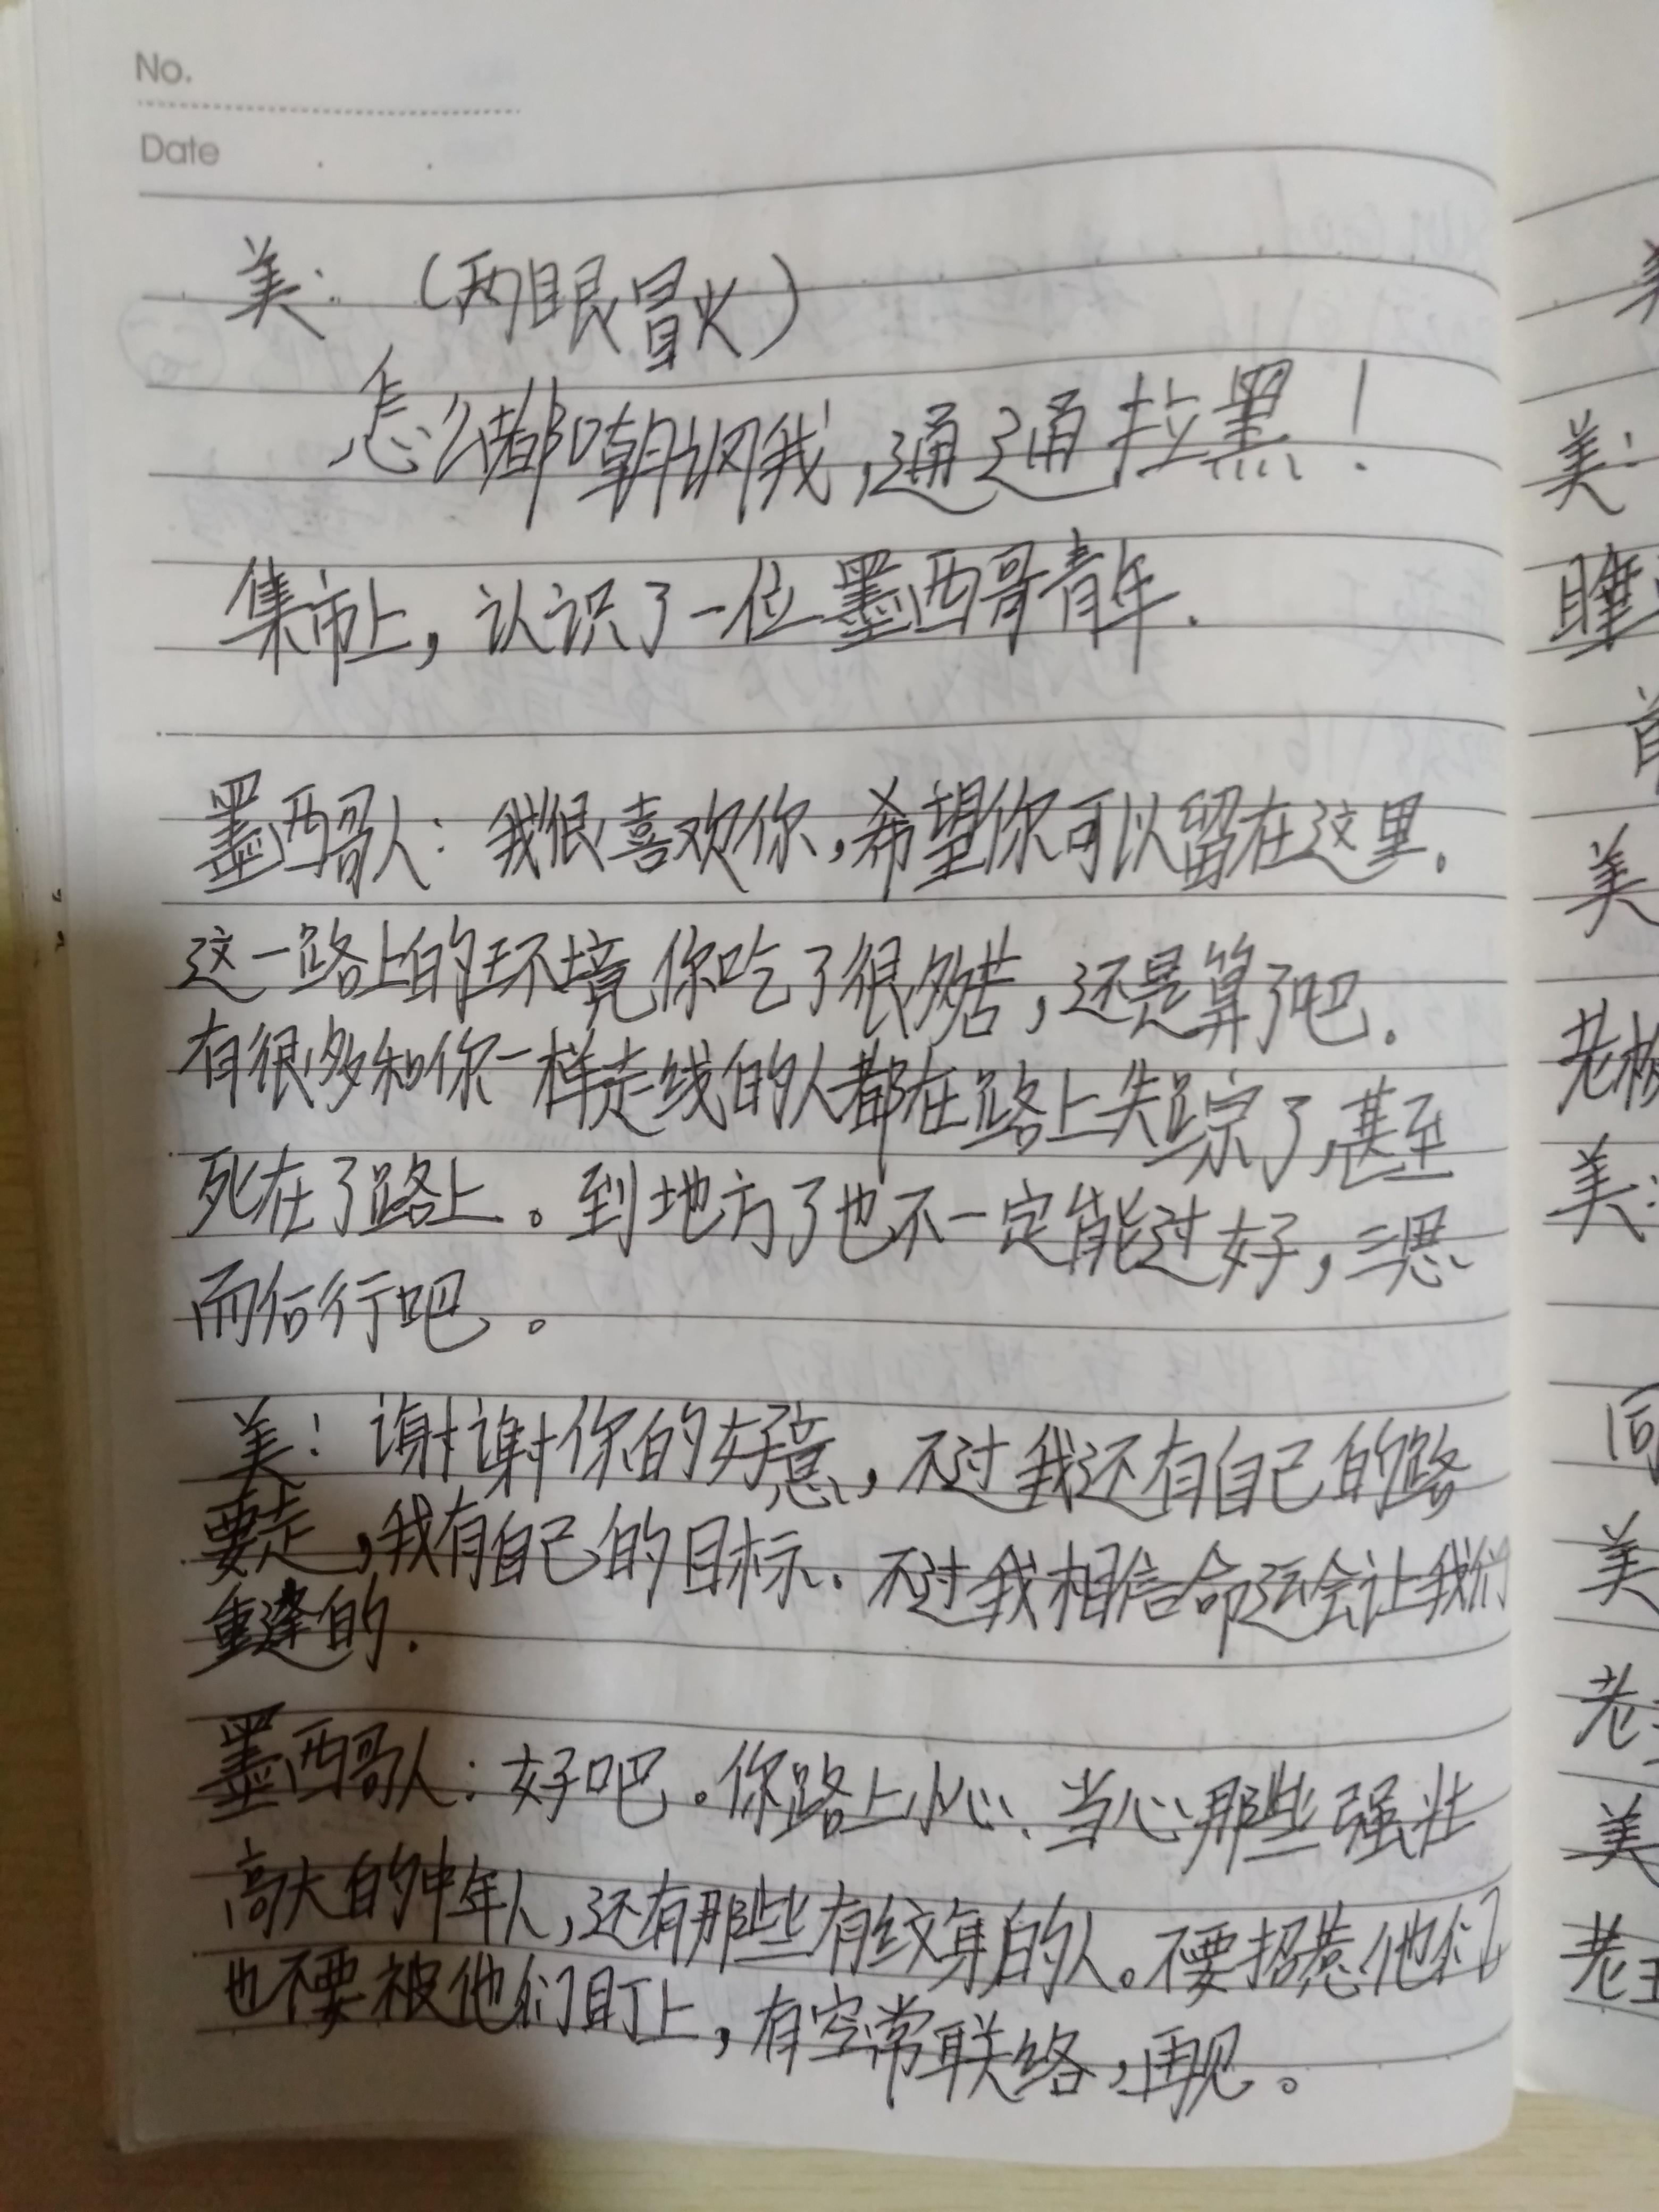 No.
Date
美：（两眼冒火）
怎么都嘲讽我，通通拉黑！
集市上，认识了一位墨西哥青年．
墨西哥人：我很喜欢你，希望你可以留在这里。
这一路上的环境你吃了很多苦，还是算了吧．
有很多和你一样走线的人都在路上失踪了，甚至
死在了路上。到地方了也不一定能过好，三思
而后行吧。
美：谢谢你的好意，不过我还有自己的路
要走，我有自己的目标．不过我相信命运会让我们
重逢的．
墨西哥人：好吧．你路上小心、当心那些强壮
高大的中年人，还有那些有纹身的人。不要招惹他们
也不要被他们盯上，有空常联络，再见。
美：
睡
美
老板
美：
同
美
老
美
老王